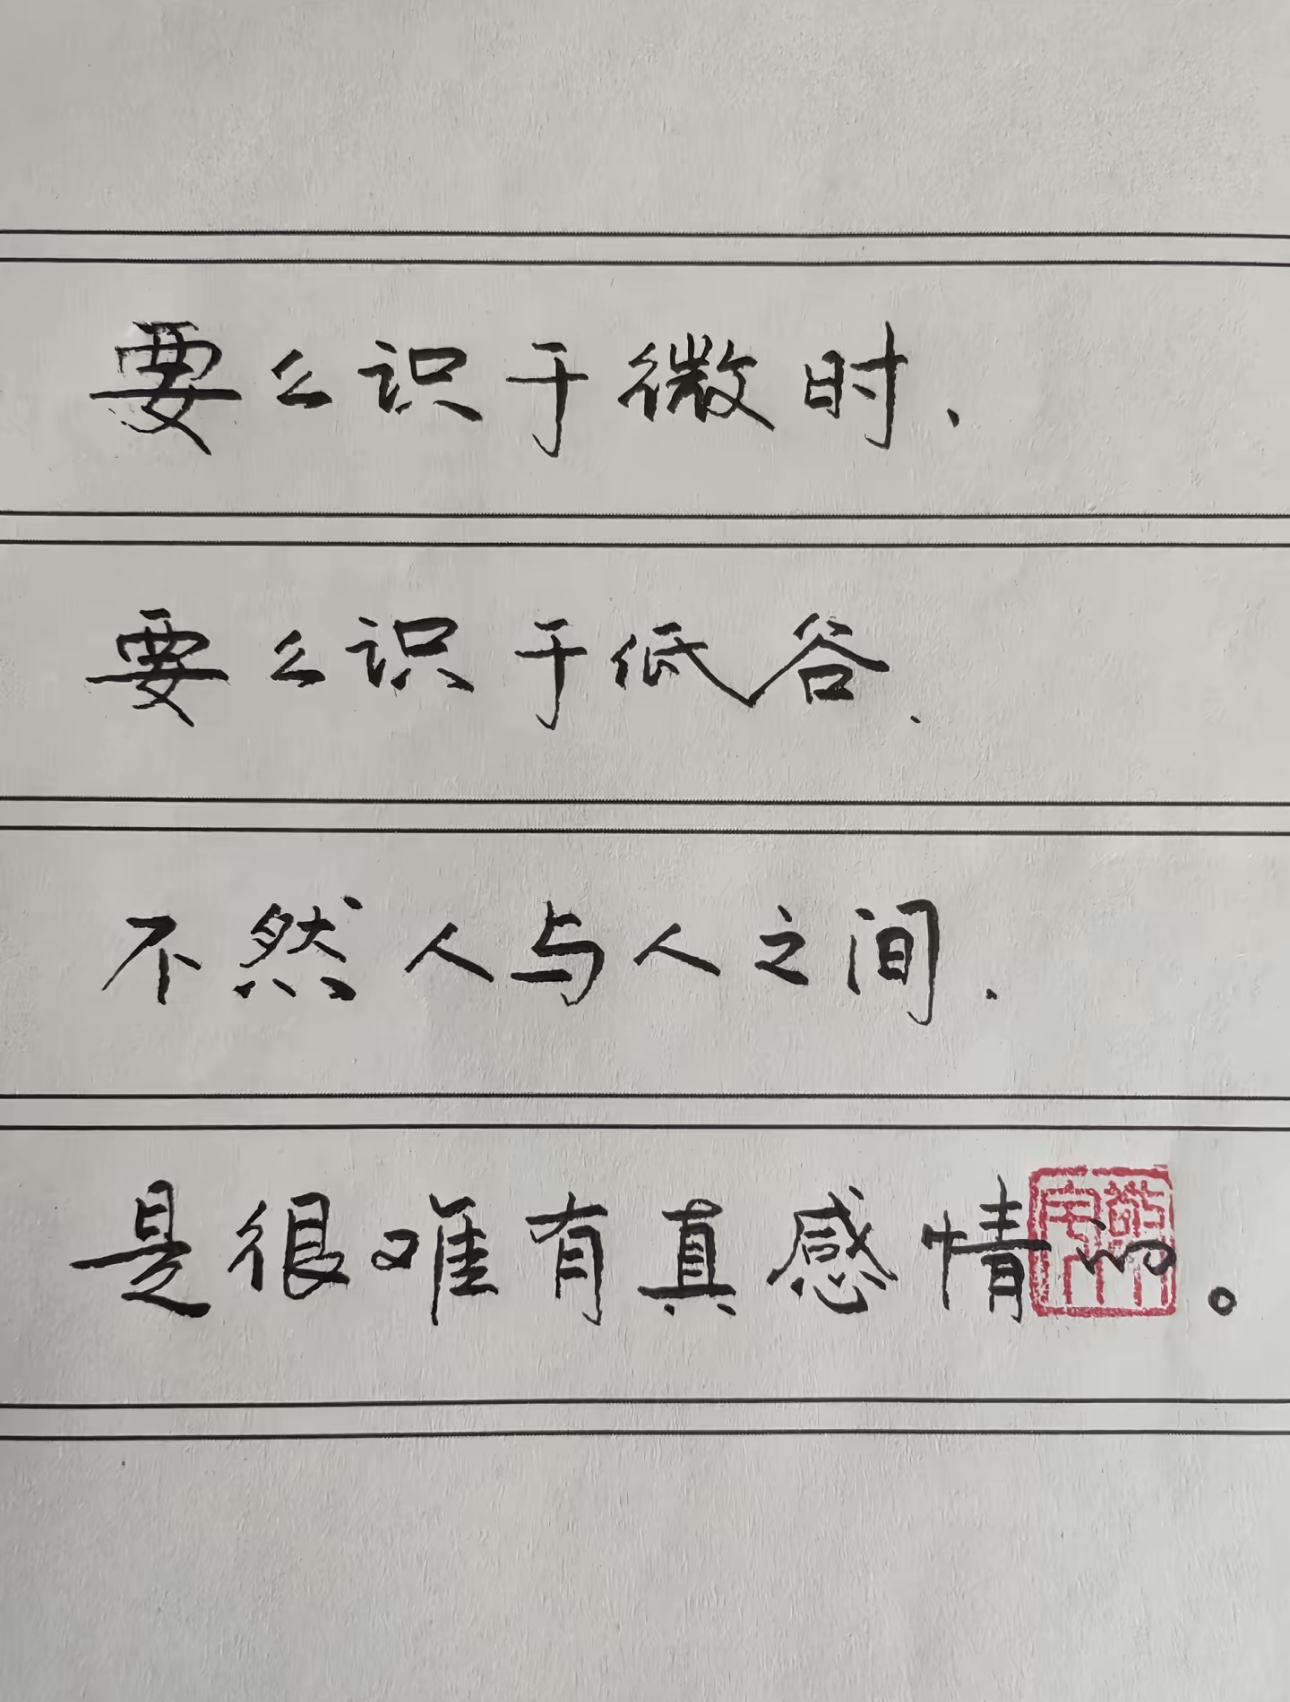 要么识于微时、
要么识于低谷、
不然人与人之间、
是很难有真感情的。